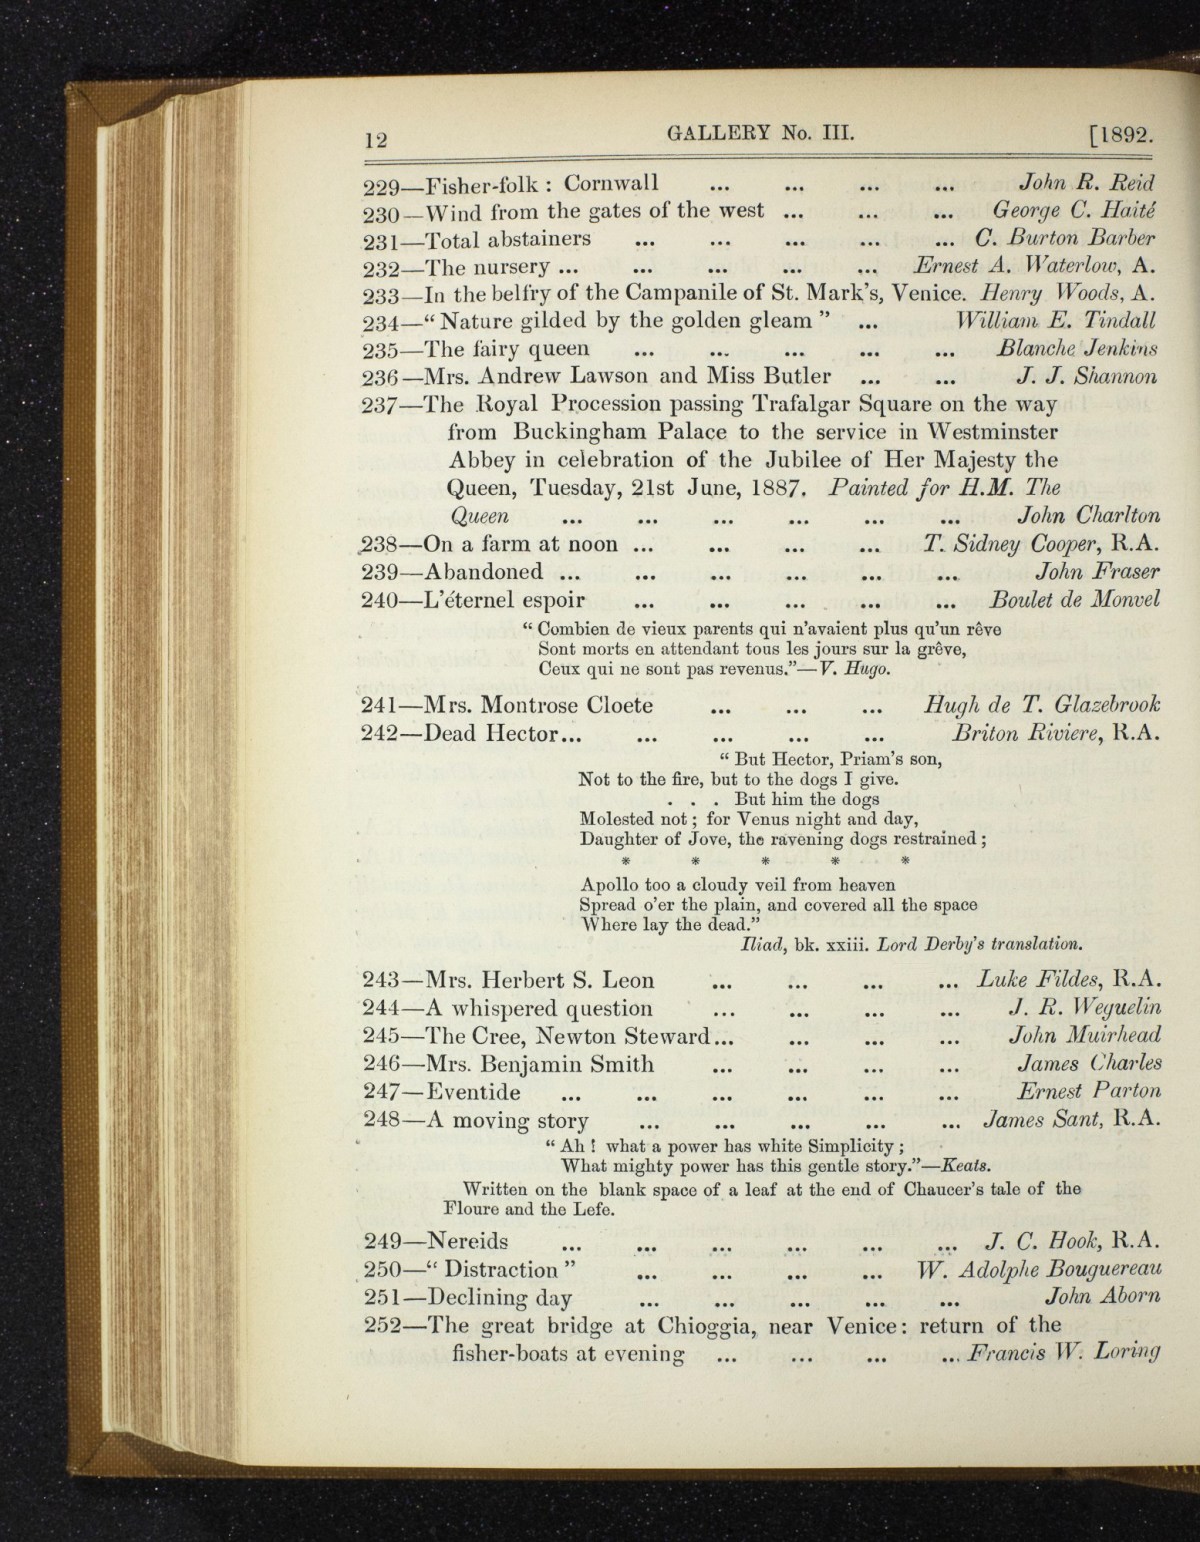 12 GALLERY No. III. [1892.
229—Fisher-folk : Cornwall ... ... ... ... John R. Reid
230—Wind from the gates of the west ... ... ... George C. Haité
231—Total abstainers ... ... ... ... ... C. Burton Barber
232—The nursery ... ... ... ... ... Ernest A. Waterlow, A.
233—In the belfry of the Campanile of St. Mark's, Venice. Henry Woods, A.
234—“ Nature gilded by the golden gleam ” ... William E. Tindall
235—The fairy queen ... ... ... ... ... Blanche Jenkins
236—Mrs. Andrew Lawson and Miss Butler ... ... J. J. Shannon
237—The Royal Procession passing Trafalgar Square on the way
from Buckingham Palace to the service in Westminster
Abbey in celebration of the Jubilee of Her Majesty the
Queen, Tuesday, 21st June, 1887. Painted for H.M. The
Queen ... ... ... ... ... ... John Charlton
238—On a farm at noon ... ... ... ... T. Sidney Cooper, R.A.
239—Abandoned ... ... ... ... ... ... John Fraser
240—L'éternel espoir ... ... ... ... ... Boulet de Monvel
“ Combien de vieux parents qui n'avaient plus qu'un rêve
Sont morts en attendant tous les jours sur la grêve,
Ceux qui ne sont pas revenus.”—V. Hugo.
241—Mrs. Montrose Cloete ... ... ... Hugh de T. Glazebrook
242—Dead Hector... ... ... ... ... Briton Riviere, R.A.
“ But Hector, Priam's son,
Not to the fire, but to the dogs I give.
. . . But him the dogs
Molested not ; for Venus night and day,
Daughter of Jove, the ravening dogs restrained ;
* * * * *
Apollo too a cloudy veil from heaven
Spread o'er the plain, and covered all the space
Where lay the dead.”
Iliad, bk. xxiii. Lord Derby's translation.
243—Mrs. Herbert S. Leon ... ... ... ... Luke Fildes, R.A.
244—A whispered question ... ... ... ... J. R. Weguelin
245—The Cree, Newton Steward... ... ... ... John Muirhead
246—Mrs. Benjamin Smith ... ... ... ... James Charles
247—Eventide ... ... ... ... ... ... Ernest Parton
248—A moving story ... ... ... ... ... James Sant, R.A.
“ Ah ! what a power has white Simplicity ;
What mighty power has this gentle story.”—Keats.
Written on the blank space of a leaf at the end of Chaucer's tale of the
Floure and the Lefe.
249—Nereids ... ... ... ... ... ... J. C. Hook, R.A.
250—“ Distraction ” ... ... ... ... W. Adolphe Bouguereau
251—Declining day ... ... ... ... ... John Aborn
252—The great bridge at Chioggia, near Venice: return of the
fisher-boats at evening ... ... ... ... Francis W. Loring